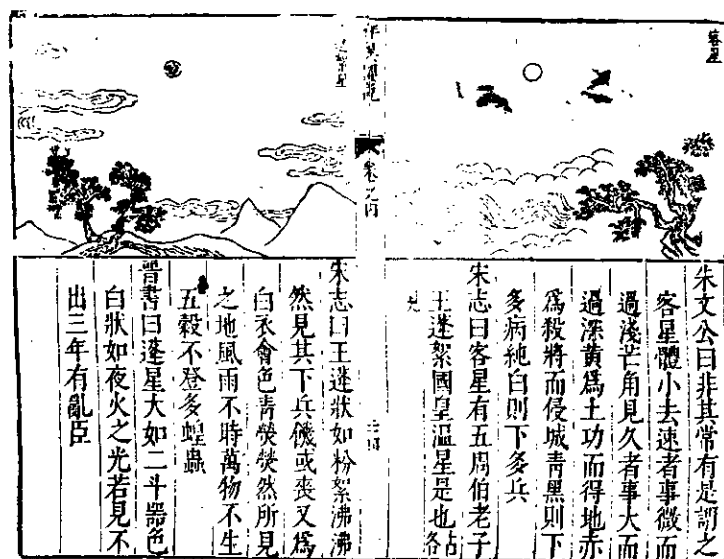 客星
朱文公曰非其常有是謂之
客星體小去速者事微而
過淺芒角見久者事大而
過深黃爲土功而得地亦
爲殺將而侵城靑黑則下
多病純白則下多兵
宋志曰客星有五周伯老子
王蓬絮國皇溫星是也各占
見
卷之
絮星
宋志曰王蓬狀如粉絮沸沸
然見其下兵饑或喪又爲
白衣會色靑熒熒然所見
之地風雨不時萬物不生
五穀不登多蝗蟲
晉書曰蓬星大如二斗器色
白狀如夜火之光若見不
出三年有亂臣